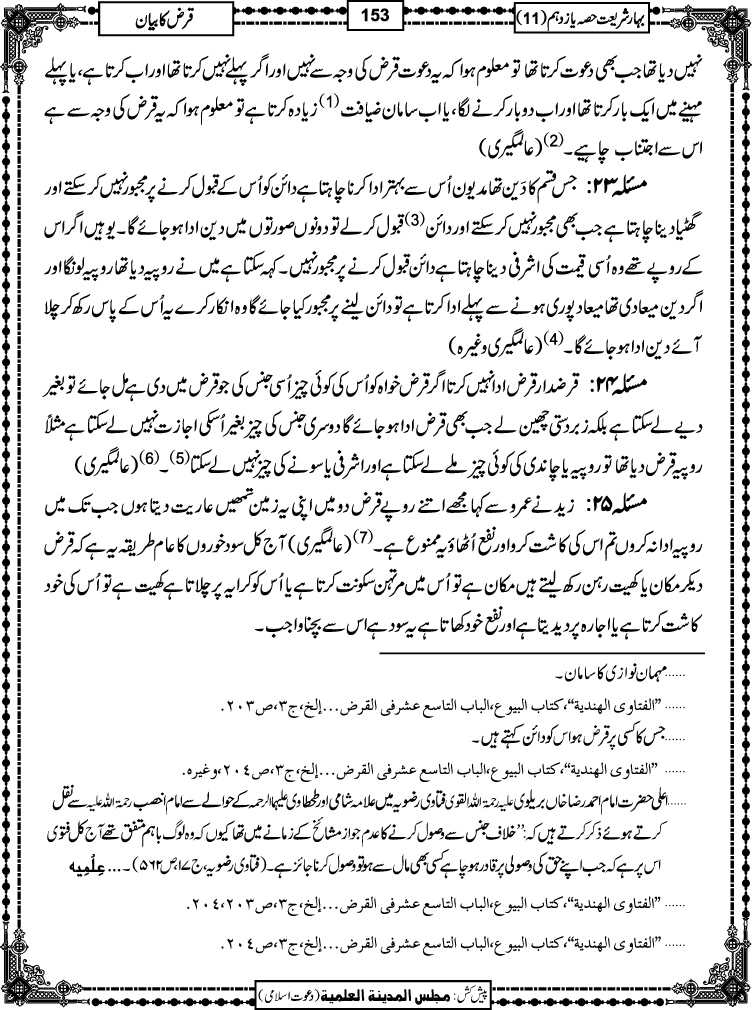 بہار شریعت حصہ یازدہم (11)
153
قرض کا بیان
نہیں دیا تھا جب بھی دعوت کرتا تھا تو معلوم ہوا کہ یہ دعوت قرض کی وجہ سے نہیں اور اگر پہلے نہیں کرتا تھا اور اب کرتا ہے، یا پہلے
مہینے میں ایک بار کرتا تھا اور اب دو بار کرنے لگا، یا اب سامان ضیافت (1) زیادہ کرتا ہے تو معلوم ہوا کہ یہ قرض کی وجہ سے ہے
اس سے اجتناب چاہیے۔ (2) (عالمگیری)
مسئلہ ۲۳: جس قسم کا دَین تھا مدیون اُس سے بہتر ادا کرنا چاہتا ہے دائن کو اُس کے قبول کرنے پر مجبور نہیں کرسکتے اور
گھٹیا دینا چاہتا ہے جب بھی مجبور نہیں کرسکتے اور دائن (3) قبول کرلے تو دونوں صورتوں میں دین ادا ہو جائے گا۔ یوہیں اگر اس
کے روپے تھے وہ اُسی قیمت کی اشرفی دینا چاہتا ہے دائن قبول کرنے پر مجبور نہیں۔ کہہ سکتا ہے میں نے روپیہ دیا تھا روپیہ لونگا اور
اگر دین میعادی تھا میعاد پوری ہونے سے پہلے ادا کرتا ہے تو دائن لینے پر مجبور کیا جائے گا وہ انکار کرے یہ اُس کے پاس رکھ کر چلا
آئے دین ادا ہو جائے گا۔ (4) (عالمگیری وغیرہ)
مسئلہ ۲۴: قرضدار قرض ادا نہیں کرتا اگر قرض خواہ کو اُس کی کوئی چیز اُسی جنس کی جو قرض میں دی ہے مل جائے تو بغیر
دیے لے سکتا ہے بلکہ زبردستی چھین لے جب بھی قرض ادا ہو جائے گا دوسری جنس کی چیز بغیر اُسکی اجازت نہیں لے سکتا ہے مثلاً
روپیہ قرض دیا تھا تو روپیہ یا چاندی کی کوئی چیز ملے لے سکتا ہے اور اشرفی یا سونے کی چیز نہیں لے سکتا (5)۔ (6) (عالمگیری)
مسئلہ ۲۵: زید نے عمرو سے کہا مجھے اتنے روپے قرض دو میں اپنی یہ زمین تمھیں عاریت دیتا ہوں جب تک میں
روپیہ ادا نہ کروں تم اس کی کاشت کرو اور نفع اُٹھاؤ یہ ممنوع ہے۔ (7) (عالمگیری) آج کل سود خوروں کا عام طریقہ یہ ہے کہ قرض
دیکر مکان یا کھیت رہن رکھ لیتے ہیں مکان ہے تو اُس میں مرتہن سکونت کرتا ہے یا اُس کو کرایہ پر چلاتا ہے کھیت ہے تو اُس کی خود
کاشت کرتا ہے یا اجارہ پر دیدیتا ہے اور نفع خود کھاتا ہے یہ سود ہے اس سے بچنا واجب۔
......مہمان نوازی کا سامان۔
......”الفتاوی الھندیة“، کتاب البیوع، الباب التاسع عشر فی القرض...إلخ، ج٣، ص٢٠٣.
......جس کا کسی پر قرض ہو اس کو دائن کہتے ہیں۔
......”الفتاوی الھندیة“، کتاب البیوع، الباب التاسع عشر فی القرض...إلخ، ج٣، ص٢٠٤، وغیرہ.
......اعلی حضرت امام احمد رضا خاں بریلوی علیہ رحمۃ اللہ القوی فتاوی رضویہ میں علامہ شامی اور طحطاوی علیہما الرحمہ کے حوالے سے امام اخصب رحمۃ اللہ علیہ سے نقل
کرتے ہوئے ذکر کرتے ہیں کہ: ”خلاف جنس سے وصول کرنے کا عدم جواز مشائخ کے زمانے میں تھا کیوں کہ وہ لوگ باہم متفق تھے آج کل فتوی
اس پر ہے کہ جب اپنے حق کی وصولی پر قادر ہو چاہے کسی بھی مال سے ہو تو وصول کرنا جائز ہے۔ (فتاوی رضویہ، ج ۱۷، ص ۵۶۲)۔... عِلْمِیه
......”الفتاوی الھندیة“، کتاب البیوع، الباب التاسع عشر فی القرض...إلخ، ج٣، ص٢٠٣، ٢٠٤.
......”الفتاوی الھندیة“، کتاب البیوع، الباب التاسع عشر فی القرض...إلخ، ج٣، ص٢٠٤.
پیش کش: مجلس المدینة العلمیة (دعوت اسلامی)